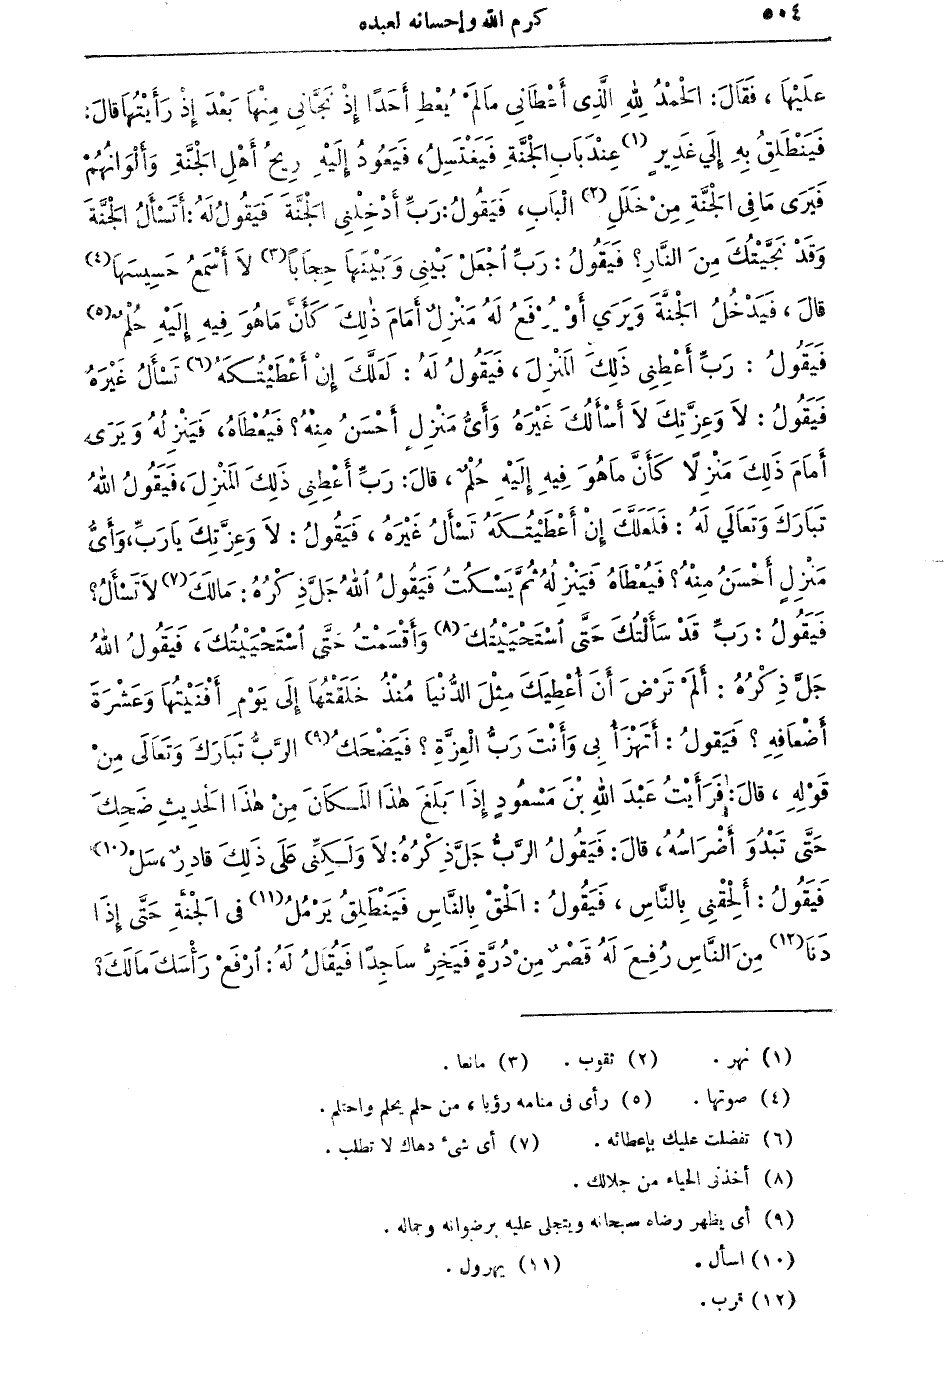 ٥٠٤ كرم الله وإحسانه لعبده
عَلَيْهَا ، فَقَالَ : الْحَمْدُ لِلهِ الَّذِى أَعْطَانِى مَالَمْ يُعْطِ أَحَدًا إِذْ نَجَّانِى مِنْهَا بَعْدَ إِذْ رَأَيْتُهَا قالَ :
فَيَنْطَلِقُ بِهِ إِلَى غَدِيرٍ (١) عِنْدَ بَابِ الْجَنَّةِ فَيَغْتَسِلُ ، فَيَعُودُ إِلَيْهِ رِيحُ أَهْلِ الْجَنَّةِ وَأَلْوَانُهُمْ
فَيَرَى مَا فِى الْجَنَّةِ مِنْ خَلَلِ (٢) الْبَابِ ، فَيَقُولُ : رَبِّ أَدْخِلْنِى الْجَنَّةَ فَيَقُولُ لَهُ : أَتَسْأَلُ الْجَنَّةَ
وَقَدْ نَجَّيْتُكَ مِنَ النَّارِ ؟ فَيَقُولُ : رَبِّ اجْعَلْ بَيْنِى وَبَيْنَهَا حِجَاباً (٣) لاَ أَسْمَعُ حَسِيسَهَا (٤)
قالَ ، فَيَدْخُلُ الْجَنَّةَ وَيَرَى أَوْ يُرْفَعُ لَهُ مَنْزِلٌ أَمَامَ ذٰلِكَ كَأَنَّ مَاهُوَ فِيهِ إِلَيْهِ حُلْمٌ (٥)
فَيَقُولُ : رَبِّ أَعْطِنِى ذٰلِكَ الْمَنْزِلَ ، فَيَقُولُ لَهُ : لَعَلَّكَ إِنْ أَعْطَيْتُكَهُ (٦) تَسْأَلُ غَيْرَهُ
فَيَقُولُ : لاَ وَعِزَّتِكَ لاَ أَسْأَلُكَ غَيْرَهُ وَأَىُّ مَنْزِلٍ أَحْسَنُ مِنْهُ ؟ فَيُعْطَاهُ ، فَيَنْزِلُهُ وَيَرَى
أَمَامَ ذٰلِكَ مَنْزِلًا كَأَنَّ مَاهُوَ فِيهِ إِلَيْهِ حُلْمٌ ، قالَ : رَبِّ أَعْطِنِى ذٰلِكَ الْمَنْزِلَ ، فَيَقُولُ اللهُ
تَبَارَكَ وَتَعَالَى لَهُ : فَلَعَلَّكَ إِنْ أَعْطَيْتُكَهُ تَسْأَلُ غَيْرَهُ ، فَيَقُولُ : لاَ وَعِزَّتِكَ يَارَبِّ ، وَأَىُّ
مَنْزِلٍ أَحْسَنُ مِنْهُ ؟ فَيُعْطَاهُ فَيَنْزِلُهُ ثُمَّ يَسْكُتُ فَيَقُولُ اللهُ جَلَّ ذِكْرُهُ : مَالَكَ (٧) لاَ تَسْأَلُ ؟
فَيَقُولُ : رَبِّ قَدْ سَأَلْتُكَ حَتَّى اسْتَحْيَيْتُكَ (٨) وَأَقْسَمْتُ حَتَّى اسْتَحْيَيْتُكَ ، فَيَقُولُ اللهُ
جَلَّ ذِكْرُهُ : أَلَمْ تَرْضَ أَنْ أُعْطِيَكَ مِثْلَ الدُّنْيَا مُنْذُ خَلَقْتُهَا إِلَى يَوْمِ أَفْنَيْتُهَا وَعَشْرَةَ
أَضْعَافِهِ ؟ فَيَقولُ : أَتَهْزَأُ بِى وَأَنْتَ رَبُّ الْعِزَّةِ ؟ فَيَضْحَكُ (٩) الرَّبُّ تَبَارَكَ وَتَعَالَى مِنْ
قَوْلِهِ ، قالَ : فَرَأَيْتُ عَبْدَ اللهِ بْنَ مَسْعُودٍ إِذَا بَلَغَ هٰذَا الْمَكَانَ مِنْ هٰذَا الْحَدِيثِ ضَحِكَ
حَتَّى تَبْدُوَ أَضْرَاسُهُ ، قالَ : فَيَقُولُ الرَّبُّ جَلَّ ذِكْرُهُ : لاَ وَلَكِنِّى عَلَى ذٰلِكَ قادِرٌ ، سَلْ (١٠)
فَيَقُولُ : أَلْحِقْنِى بِالنَّاسِ ، فَيَقُولُ : الْحَقْ بِالنَّاسِ فَيَنْطَلِقُ يَرْمُلُ (١١) فِى الْجَنَّةِ حَتَّى إِذَا
دَنَا (١٢) مِنَ النَّاسِ رُفِعَ لَهُ قَصْرٌ مِنْ دُرَّةٍ فَيَخِرُّ سَاجِدًا فَيُقَالُ لَهُ : ارْفَعْ رَأْسَكَ مَالَكَ ؟
(١) نهر . (٢) ثقوب . (٣) مانعا .
(٤) صوتها . (٥) رأى فى منامه رؤيا ، من حلم يحلم واحتلم .
(٦) تفضلت عليك بإعطائه . (٧) أى شىء دهاك لا تطلب .
(٨) أخذنى الحياء من جلالك .
(٩) أى يظهر رضاه سبحانه ويتجلى عليه برضوانه وجماله .
(١٠) اسأل . (١١) يهرول .
(١٢) قرب .